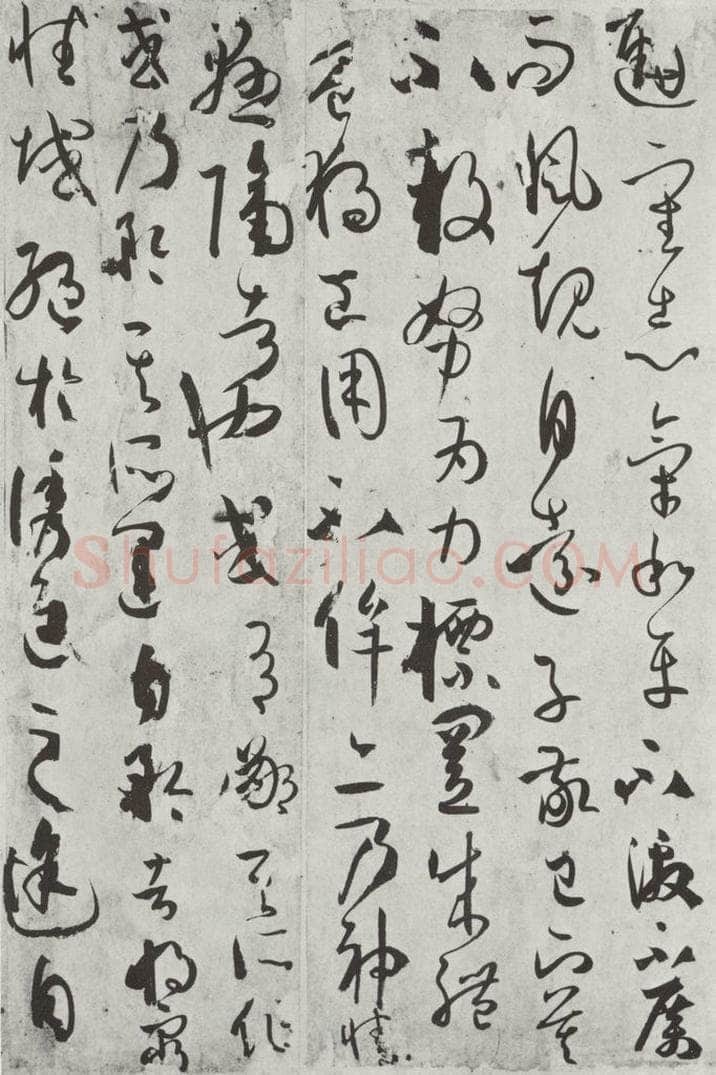 通審志氣和平不激不厲
而風規自遠子敬已下莫
不鼓努為力標置成體
豈獨工用不侔亦乃神情
懸隔者也或有鄙其所作
或乃矜其所運自矜者將窮
性域絕於誘進之途自
Shufaziliao.COM